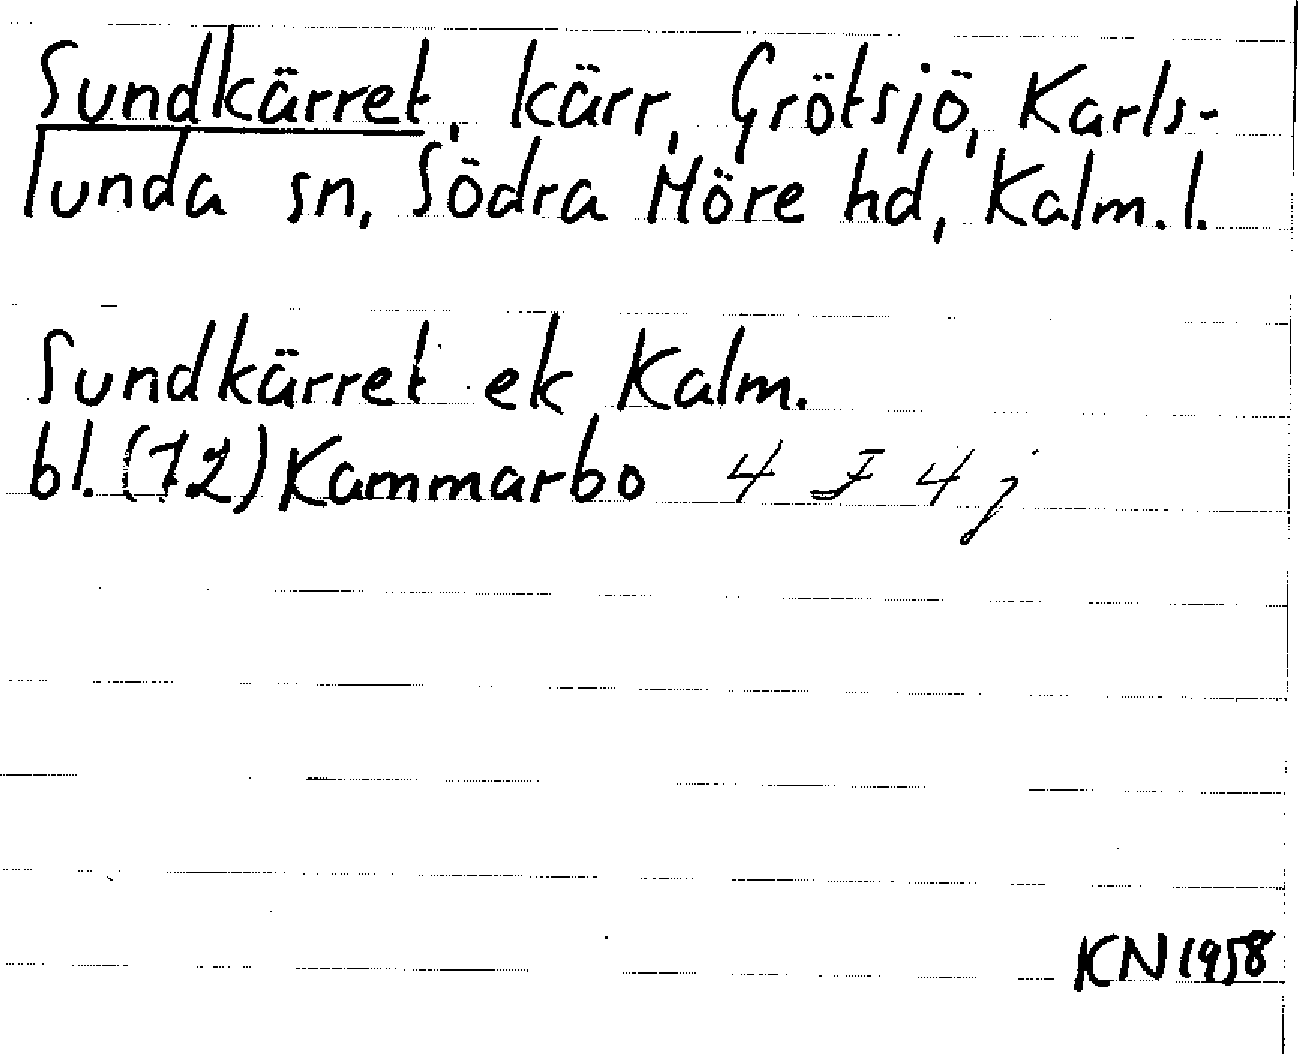 Sundkärret, kärr, Grötsjö, Karls-
lunda sn, Södra Möre hd, Kalm. l.
Sundkärret ek Kalm.
bl. (12) Kammarbo 4 F 4 j
KN 1958